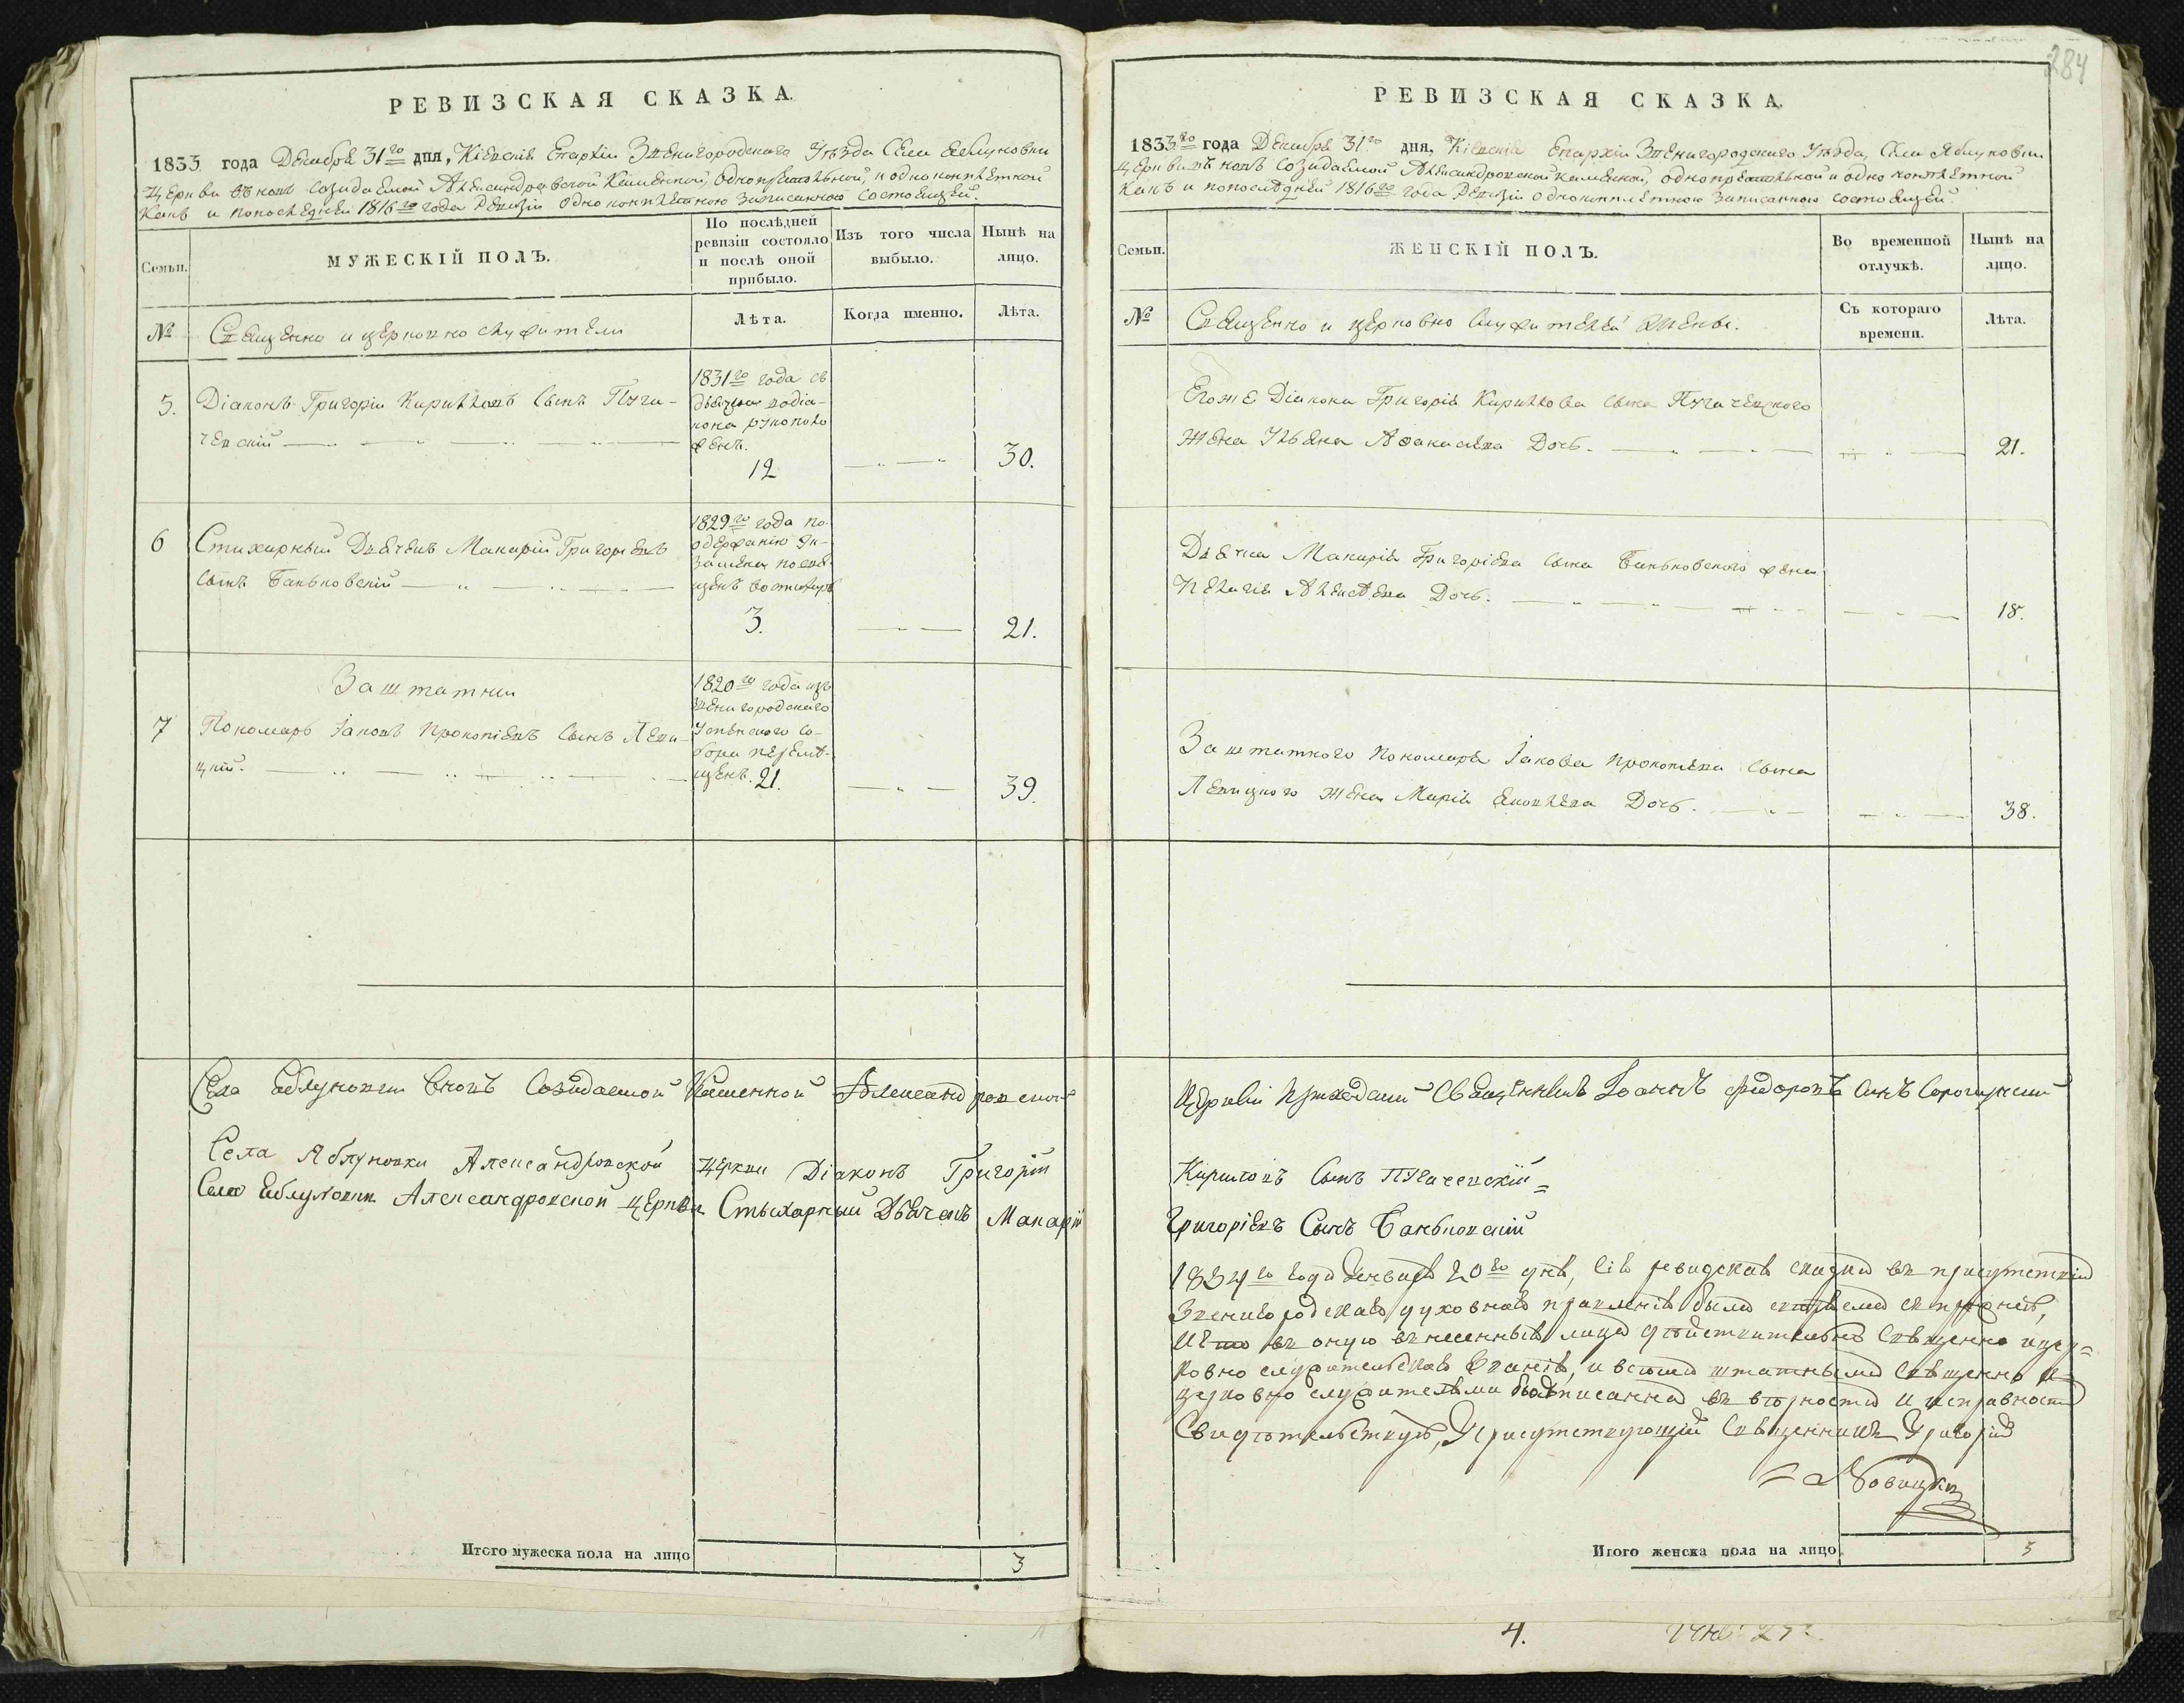 РЕВИЗСКАЯ СКАЗКА.
1833 года Декабря 31го дня, Кіевскія Епархіи Звенигородскаго Уѣзда Села Яблуновки
Церкви въ новъ созидаемой Александровской каменной, однопрестольной, и однокомплетной
Какъ и попослѣдней 1816го года Ревизіи однокомплетною записанною состоящей.
Семьи.
МУЖЕСКІЙ ПОЛЪ.
По послѣдней ревизіи состояло и послѣ оной прибыло.
Изъ того числа выбыло.
Нынѣ на лицо.
№
Священно и церковно служители
Лѣта.
Когда именно.
Лѣта.
5.
Діаконъ Григорій Кириловъ сынъ Пуга-
чевскій
1831го года съ
дьячка водіа-
кона рукополо
женъ.
12
30.
6
Стихарный Дьячекъ Макарій Григорьевъ
сынъ Баньковскій
1829го года по
одержанію эк-
замена посвя-
щенъ востихарь
3.
21.
Заштатни
7
Пономарь Іаковъ Прокопіевъ сынъ Леви-
цкій.
1820го года изъ
Звенигородскаго
Успенского Со-
бора перемѣ-
щенъ. 21.
39.
Села Яблуновки вновъ созидаемой Каменной Александровской
Села Яблуновки Александровской Церкви Діаконъ Григорій
Села Яблуновки Александровской Церкви Стыхарный Дьячекъ Макарій
Итого мужеска пола на лицо
3
284
РЕВИЗСКАЯ СКАЗКА.
1833го года Декабря 31го дня, Кіевскія Епархіи Звенигородскаго Уѣзда, Села Яблуновки
Церкви въ новъ созидаемой Александровской каменной, однопрестольной и однокомплетной
Какъ и попослѣдней 1816го года Ревизіи однокомплетною записанною состоящей.
Семьи.
ЖЕНСКІЙ ПОЛЪ.
Во временной отлучкѣ.
Нынѣ на лицо.
№
Священно и церковно служителей жены.
Съ котораго времени.
Лѣта.
Егоже Діакона Григорія Кирилова сына Пугачевского
жена Ульяна Афанасіева Дочь.
21.
Дьячка Макарія Григоріева сына Баньковского жена
Пелагія Алексѣева Дочь.
18.
Заштатного пономаря Іакова Прокопіева сына
Левицкого жена Марія Яковлева Дочь.
38.
Церкви Приходскій Священникъ Іоаннъ Федоровъ синъ
Кириловъ Сынъ Пугачевскій
Григоріевъ Сынъ Баньковскій
1834го года Января 20го дня, сія ревизская сказка въ присутствіи
Звенигородскаго духовнаго правленія была
Что въ оную внесенныя лица дѣйствительно священно и цер=
ковно служительскаго званія, и всѣми штатными священно и
церковно служителями подписанна въ вѣрности и исправности
Свидѣтельствую, Присутствующій Священникъ Григорій
Новицкій
Итого женска пола на лицо
3
4.